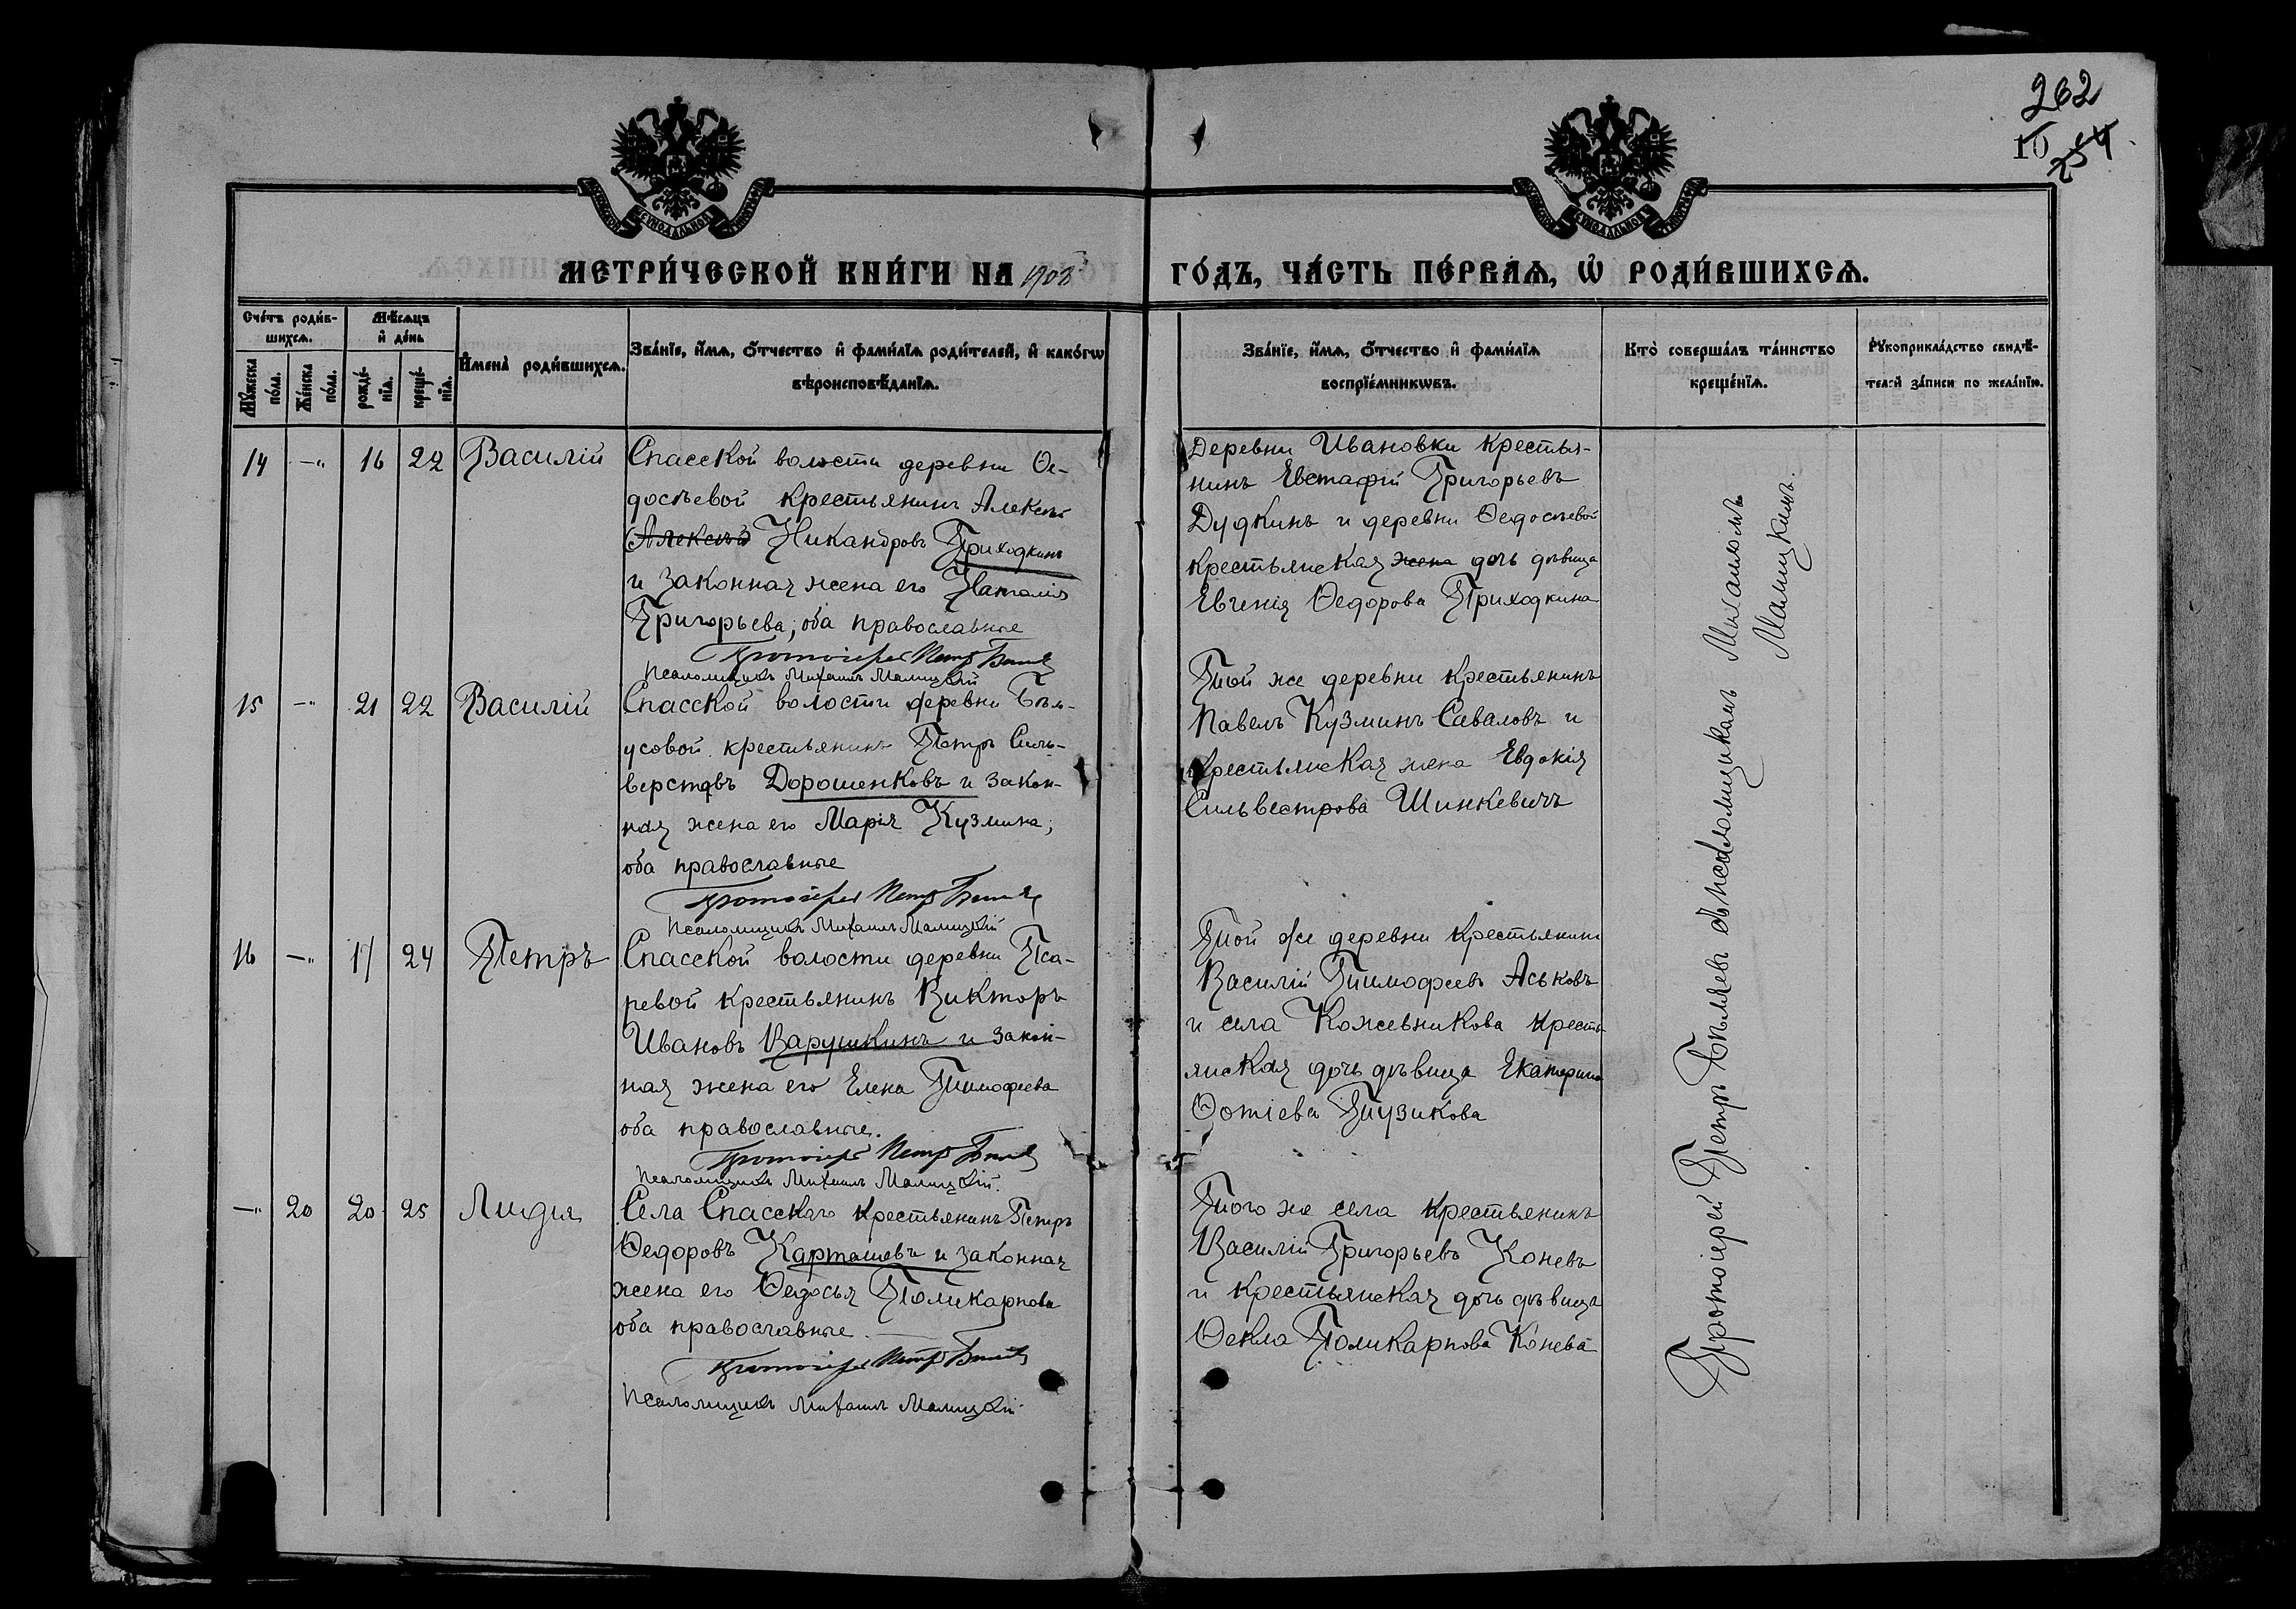 262
10 254
МЕТРИ́ЧЕСКОЙ КНИ́ГИ НА 1908
ГО́ДЪ, ЧА́СТЬ ПЕ́РВАѦ, Ѿ РОДИ́ВШИХСѦ.
Сче́тъ роди́в-
шихсѧ.
Мꙋ́жеска по́ла.
Же́нска по́ла.
Мѣ́сѧцъ
и҆ де́нь
рожде́-
нїѧ.
креще́-
нїѧ.
И҆мена̀ роди́вшихсѧ.
Зва́нїе, и҆́мѧ, ѻ҆́тчество и҆ фами́лїѧ роди́телей, и҆ како́гѡ
вѣроисповѣ́данїѧ.
Зва́нїе, и҆́мѧ, ѻ҆́тчество и҆ фами́лїѧ
воспрїе́мникѡвъ.
Кто̀ соверша́лъ та́инство
креще́нїѧ.
Рꙋкоприкла́дство свидѣ́-
телей за́писи по жела́нїю.
14 –„ 16 22 Василій
Спасской волости деревни Ѳе-
досѣевой крестьянинъ Алексѣй
Алексѣй Никандровъ Приходкинъ
и законная жена его Наталія
Григорьева; оба православные
Протоіерей Петръ Бѣляевъ
Псаломщикъ Михаилъ Малицкій
Деревни Ивановки крестья-
нинъ Евстафій Григорьевъ
Дудкинъ и деревни Ѳедосѣевой
крестьянская жена дочь дѣвица
Евгенія Ѳедорова Приходкина
15 –„ 21 22 Василій
Спасской волости деревни Бѣло-
усовой крестьянинъ Петръ Силь-
верстовъ Дорошенковъ и закон-
ная жена его Марія Кузмина;
оба православные
Протоіерей Петръ Бѣляевъ
Псаломщикъ Михаилъ Малицкій
Той же деревни крестьянинъ
Павелъ Кузминъ Саваловъ и
крестьянская жена Евдокія
Сильвестрова Шинкевичъ
16 –„ 17 24 Петръ
Спасской волости деревни Пса-
ревой крестьянинъ Викторъ
Ивановъ Варушкинъ и закон-
ная жена его Елена Тимофеева
оба православные.
Протоіерей Петръ Бѣляевъ
Псаломщикъ Михаилъ Малицкій.
Той же деревни крестьянинъ
Василій Тимофеевъ Аськовъ
и села Кожевникова кресть
янская дочь дѣвица Екатерина
Ѳотіева Тузикова
–„ 20 20 25 Лидія
Села Спасскаго крестьянинъ Петръ
Ѳедоровъ Карташевъ и законная
жена его Ѳедосья Поликарпова
оба православные.
Протоіерей Петръ Бѣляевъ
Псаломщикъ Михаилъ Малицкій
Того же села крестьянинъ
Василій Григорьевъ Коневъ
и крестьянская дочь дѣвица
Ѳекла Поликарпова Конева
Протоіерей Петръ Бѣляевъ съ псаломщикомъ Михаиломъ
Малицкимъ.